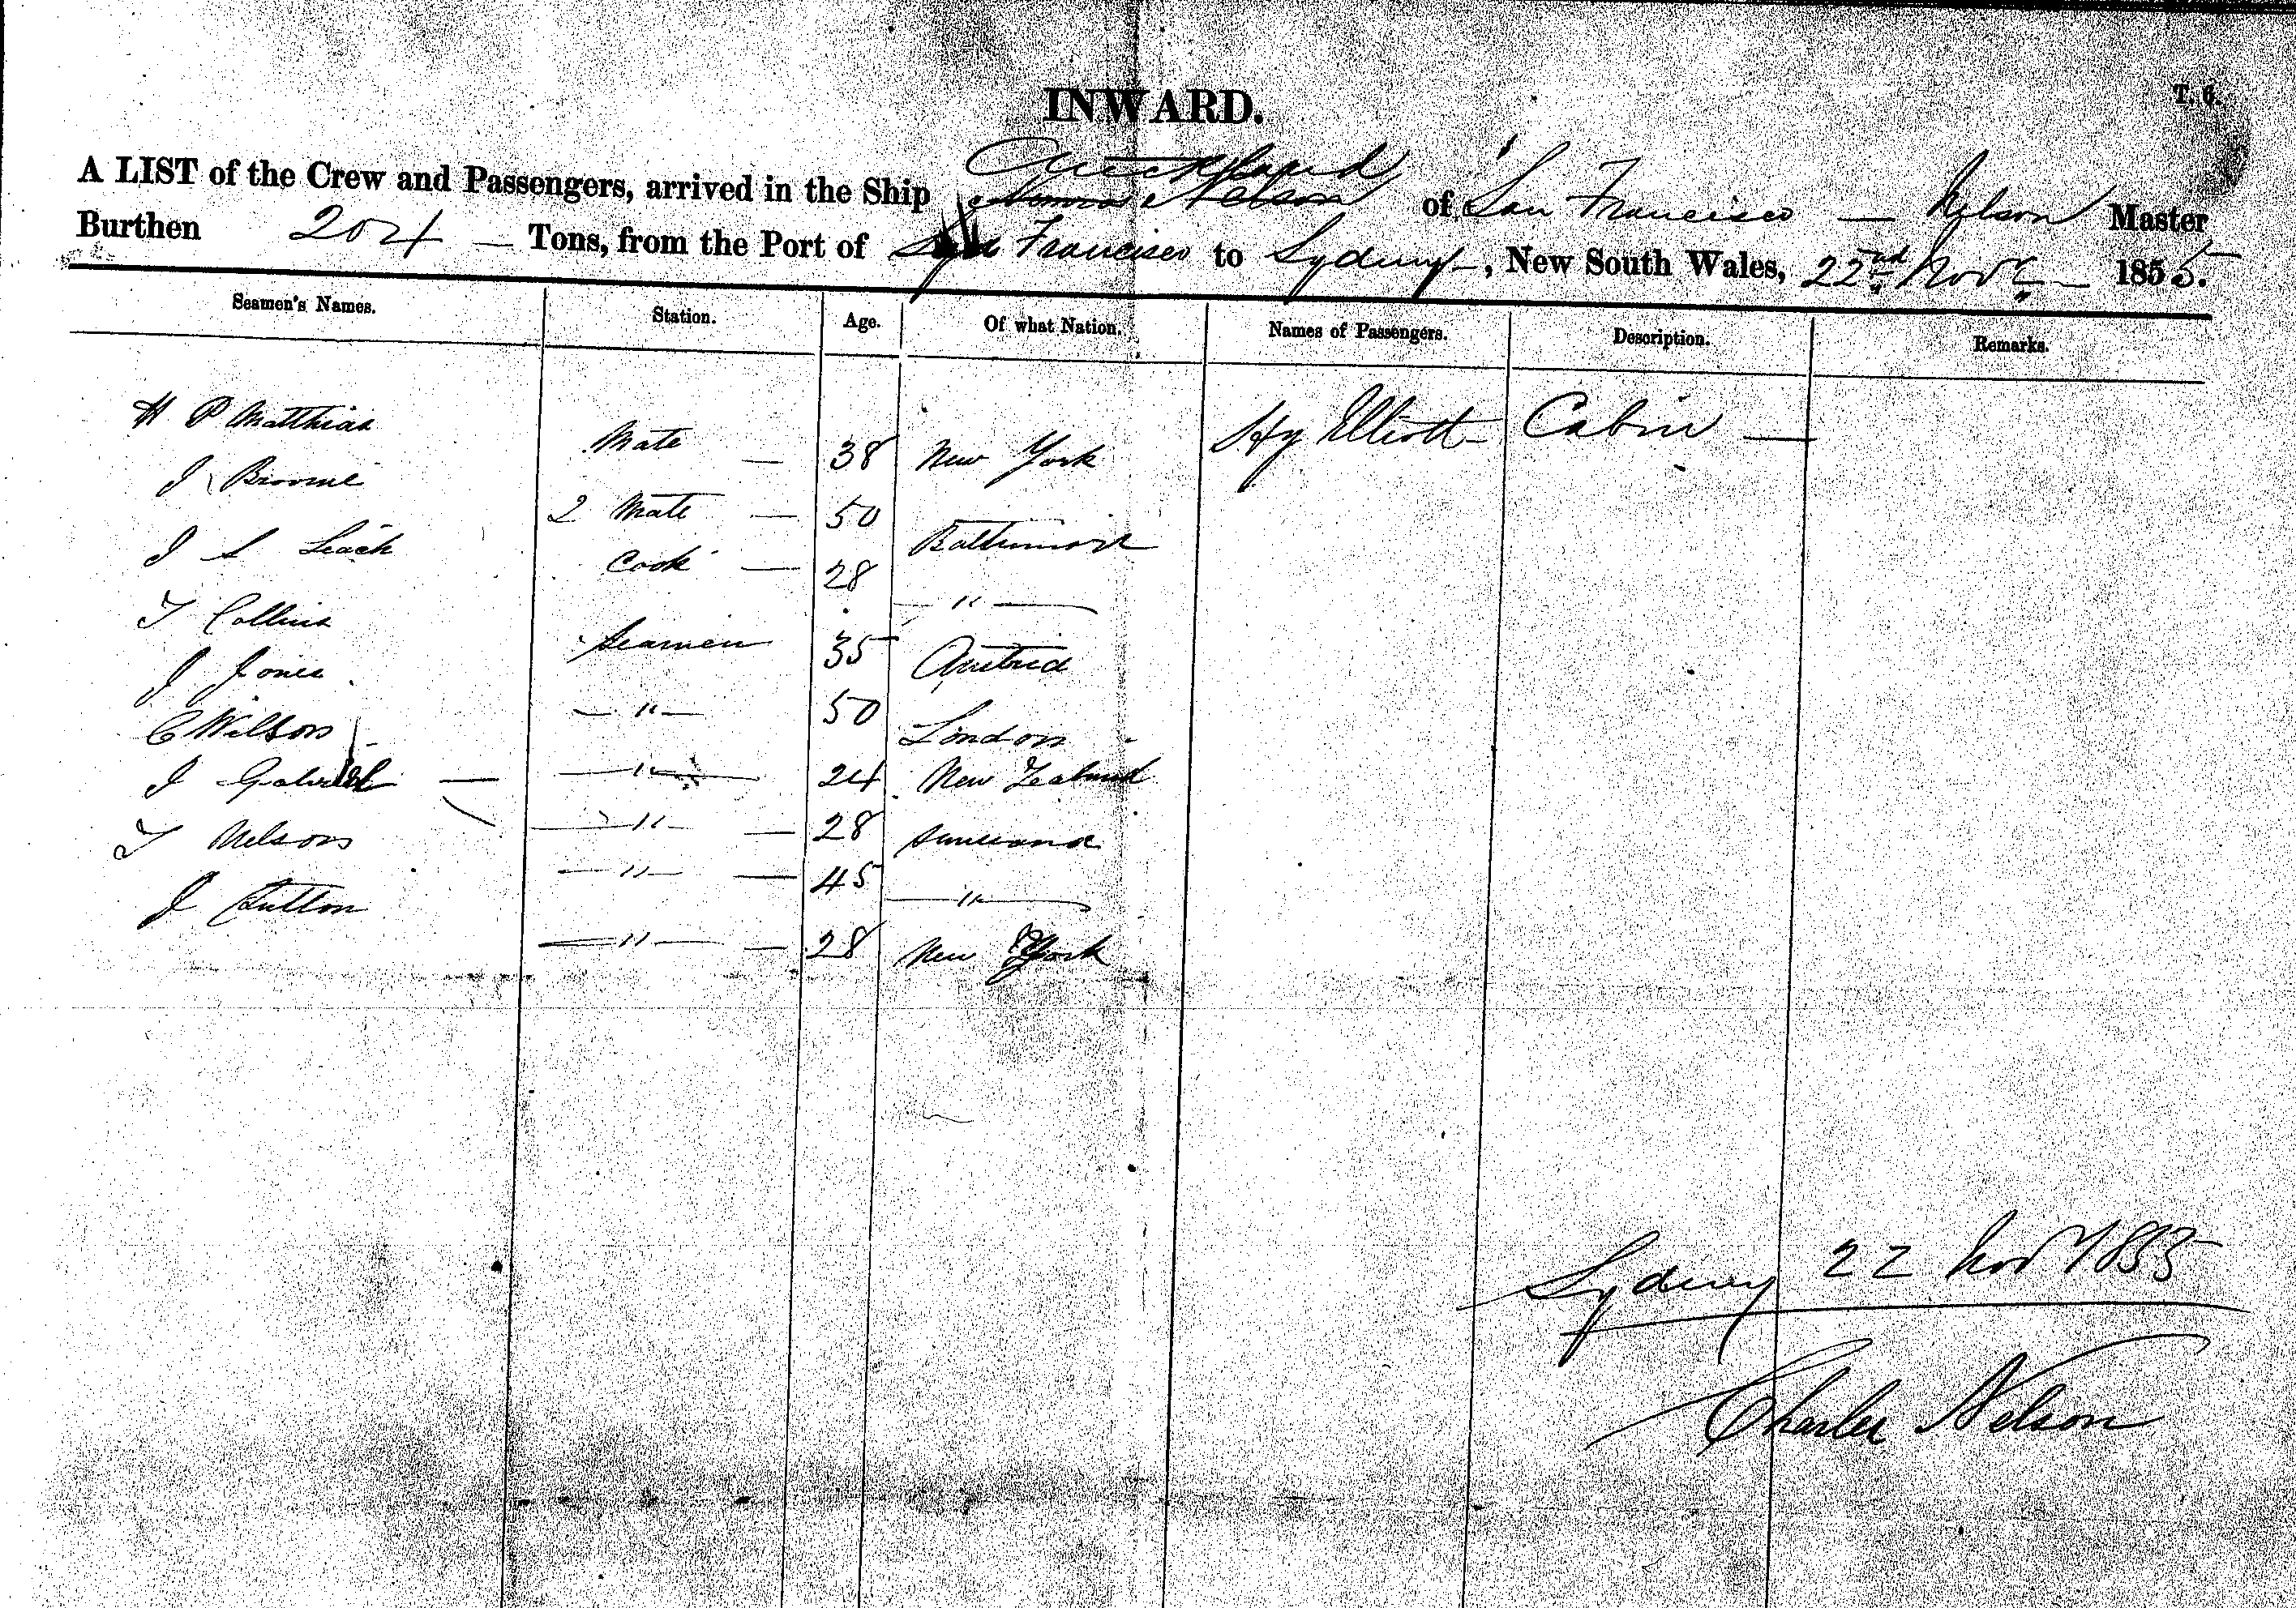 INWARD.
T. 6.
A LIST of the Crew and Passengers, arrived in the Ship Auckland of San Francisco — Nelson Master
Burthen 204 — Tons, from the Port of San Francisco to Sydney —, New South Wales, 22nd Novr — 1855.
Seamen's Names. Station. Age. Of what Nation. Names of Passengers. Description. Remarks.
H P Matthias Mate — 38 New York Hy Elliott — Cabin —
J Broome 2 Mate — 50 Baltimore
J S Leach Cook — 28 — " —
T Collins Seamen 35
J Jones — " — 50 London
C Wilson — " — 24 New Zealand
J Gabriel — — " — — 28
T Nelson — " — — 45 — " —
J Sutton — " — — 28 New York
Sydney 22 Nov 1855
Charles Nelson